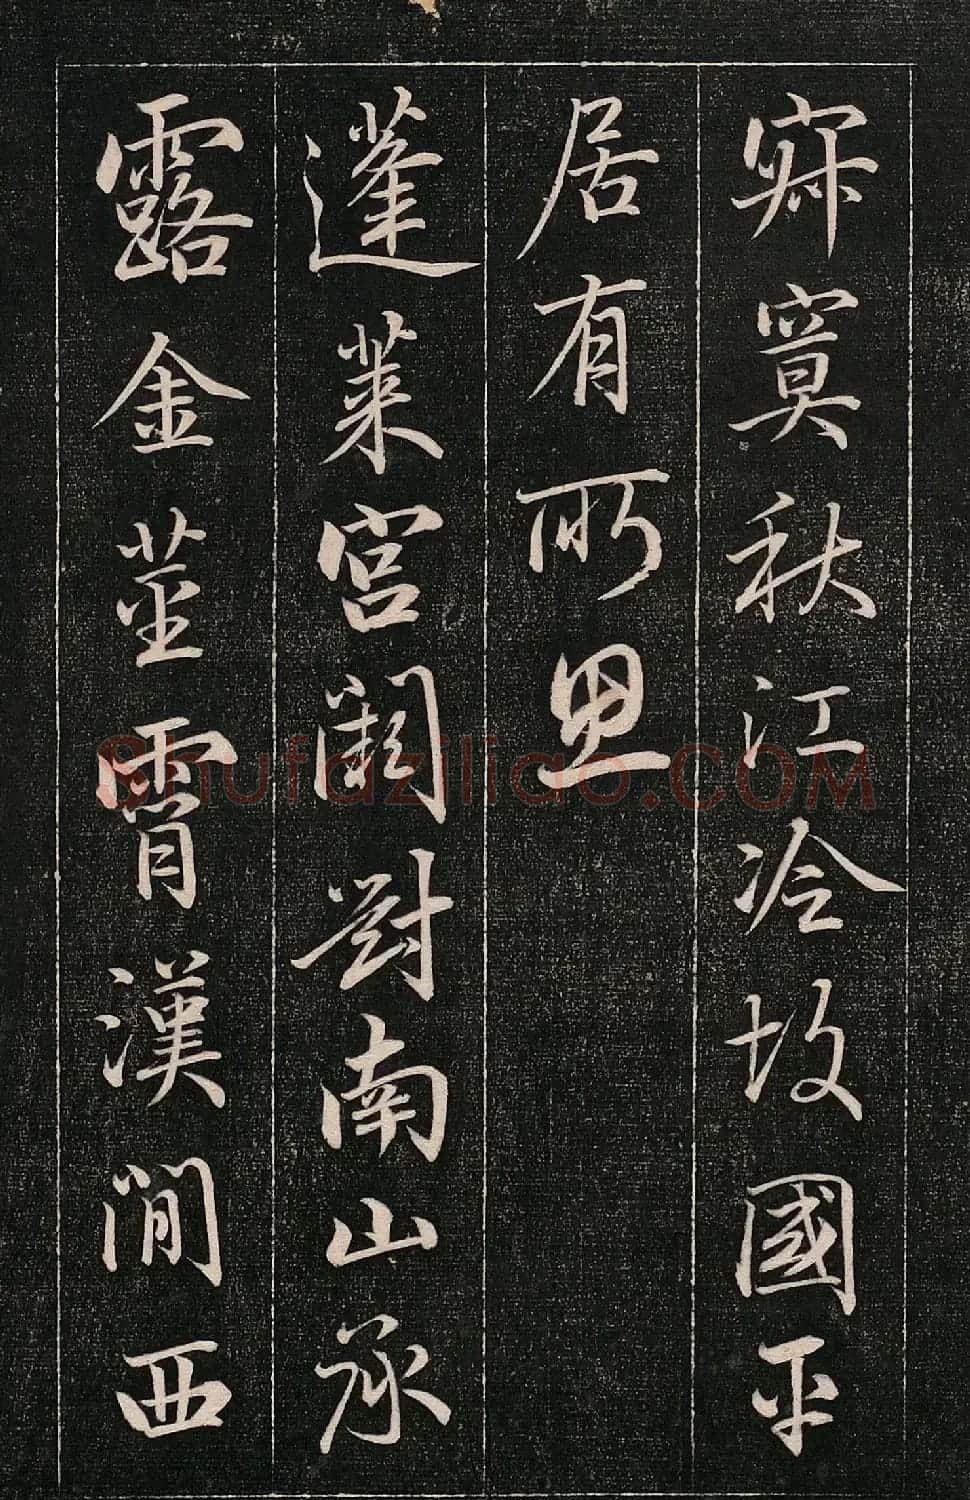 寂寞秋江冷故國平
居有所思
蓬萊宮闕對南山承
露金莖霄漢間西
Shufaziliao.COM